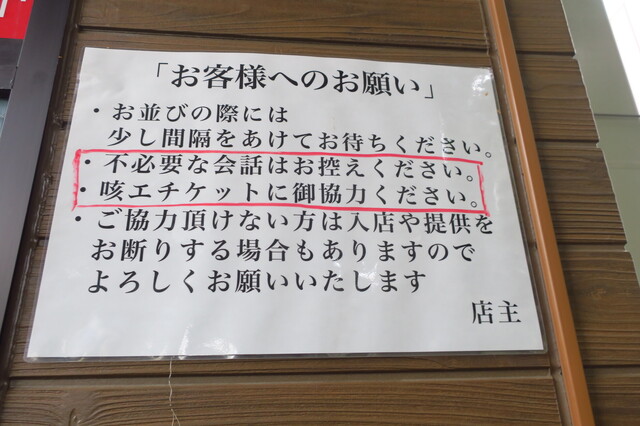 「お客様へのお願い」
・お並びの際には
少し間隔をあけてお待ちください。
・不必要な会話はお控えください。
・咳エチケットに御協力ください。
・ご協力頂けない方は入店や提供を
お断りする場合もありますので
よろしくお願いいたします
店主